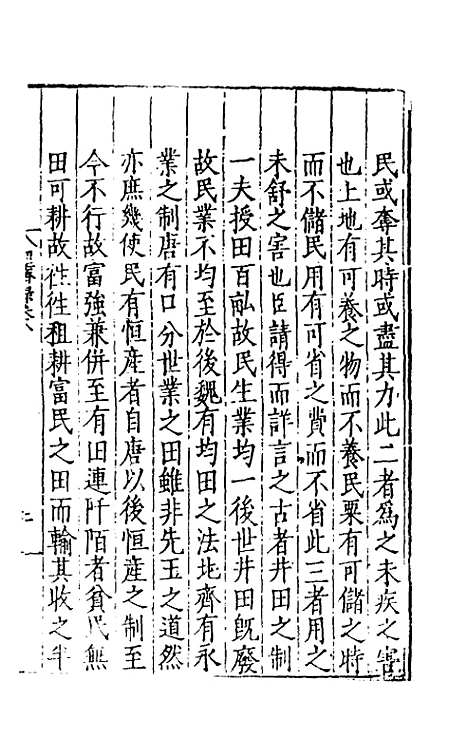 民或奪其時或盡其力此二者爲之未疾之害
也上地有可養之物而不養民粟有可儲之時
而不儲民用有可省之費而不省此三者用之
未舒之害也臣請得而詳言之古者井田之制
一夫授田百畝故民生業均一後世井田既廢
故民業不均至於後魏有均田之法北齊有永
業之制唐有口分世業之田雖非先王之道然
亦庶幾使民有恒産者自唐以後恒産之制至
今不行故富強兼併至有田連阡陌者貧民無
田可耕故徃徃租耕富民之田而輸其收之半